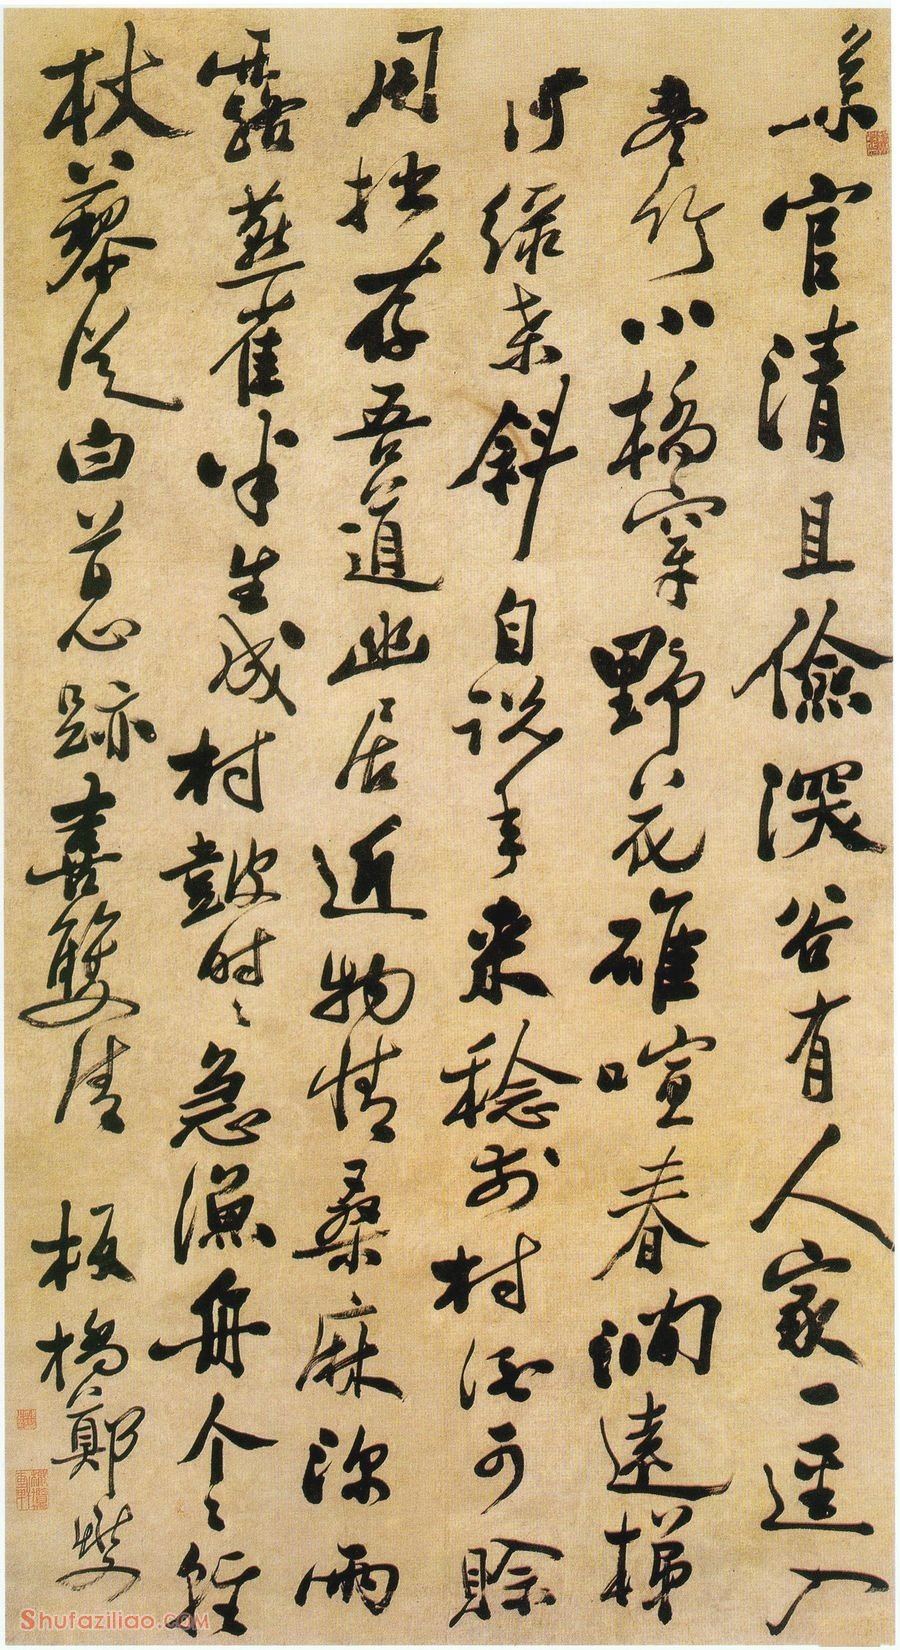 縣官清且儉深谷有人家一逕入
寒竹小橋穿野花碓喧春澗遠梯
倚綠桑斜自說年來稔前村酒可賒
用拙存吾道幽居近物情桑麻深雨
露燕雀半生成村鼓時々急漁舟个々輕
杖藜從白首心跡喜雙清 板橋鄭燮
Shufaziliao.COM